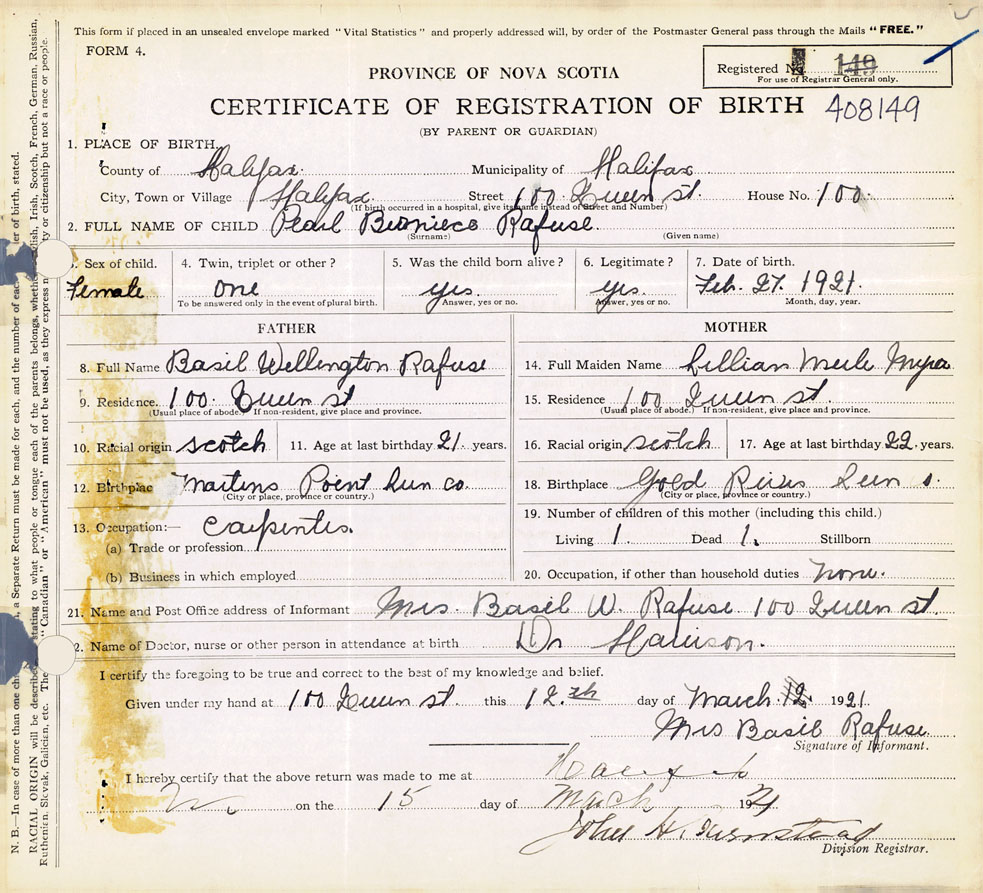 This form if placed in an unsealed envelope marked "Vital Statistics" and properly addressed will, by order of the Postmaster General pass through the Mails "FREE."
FORM 4.
Registered No. 149
For use of Registrar General only.
PROVINCE OF NOVA SCOTIA
CERTIFICATE OF REGISTRATION OF BIRTH 408149
(BY PARENT OR GUARDIAN)
1. PLACE OF BIRTH.
County of Halifax. Municipality of Halifax
City, Town or Village Halifax Street 100 Queen st. House No. 100
(If birth occurred in a hospital, give its name instead of Street and Number)
2. FULL NAME OF CHILD Pearl Rafuse.
(Surname) (Given name)
3. Sex of child. 4. Twin, triplet or other? 5. Was the child born alive? 6. Legitimate? 7. Date of birth.
Female one yes. yes. Feb. 27. 1921.
To be answered only in the event of plural birth. Answer, yes or no. Answer, yes or no. Month, day, year.
FATHER MOTHER
8. Full Name Basil Wellington Rafuse 14. Full Maiden Name Lillian Merle Myra
9. Residence. 100 Queen st 15. Residence 100 Queen st.
(Usual place of abode.) If non-resident, give place and province. (Usual place of abode.) If non-resident, give place and province.
10. Racial origin scotch 11. Age at last birthday 21. years. 16. Racial origin scotch 17. Age at last birthday 22. years.
12. Birthplac Martins Point Lun co. 18. Birthplace Gold River Lun
(City or place, province or country.) (City or place, province or country.)
13. Occupation:— Carpenter. 19. Number of children of this mother (including this child.)
(a) Trade or profession Living 1. Dead 1. Stillborn
(b) Business in which employed 20. Occupation, if other than household duties none.
21. Name and Post Office address of Informant Mrs. Basil W. Rafuse 100 Queen st.
2. Name of Doctor, nurse or other person in attendance at birth Dr Harrison.
I certify the foregoing to be true and correct to the best of my knowledge and belief.
Given under my hand at 100 Queen st. this 12.th day of March 12. 1921.
Mrs Basil Rafuse.
Signature of Informant.
I hereby certify that the above return was made to me at Halifax
on the 15 day of March 1921
John H.
Division Registrar.
N. B.—In case of more than one ch, a Separate Return must be made for each, and the number of each er of birth, stated.
RACIAL ORIGIN will be describe stating to what people or tongue each of the parents belongs, wheth lish, Irish, Scotch, French, German, Russian,
Ruthenian, Slovak, Galician, etc. The "Canadian" or "American" must not be used, as they express n ty or citizenship but not a race or people.